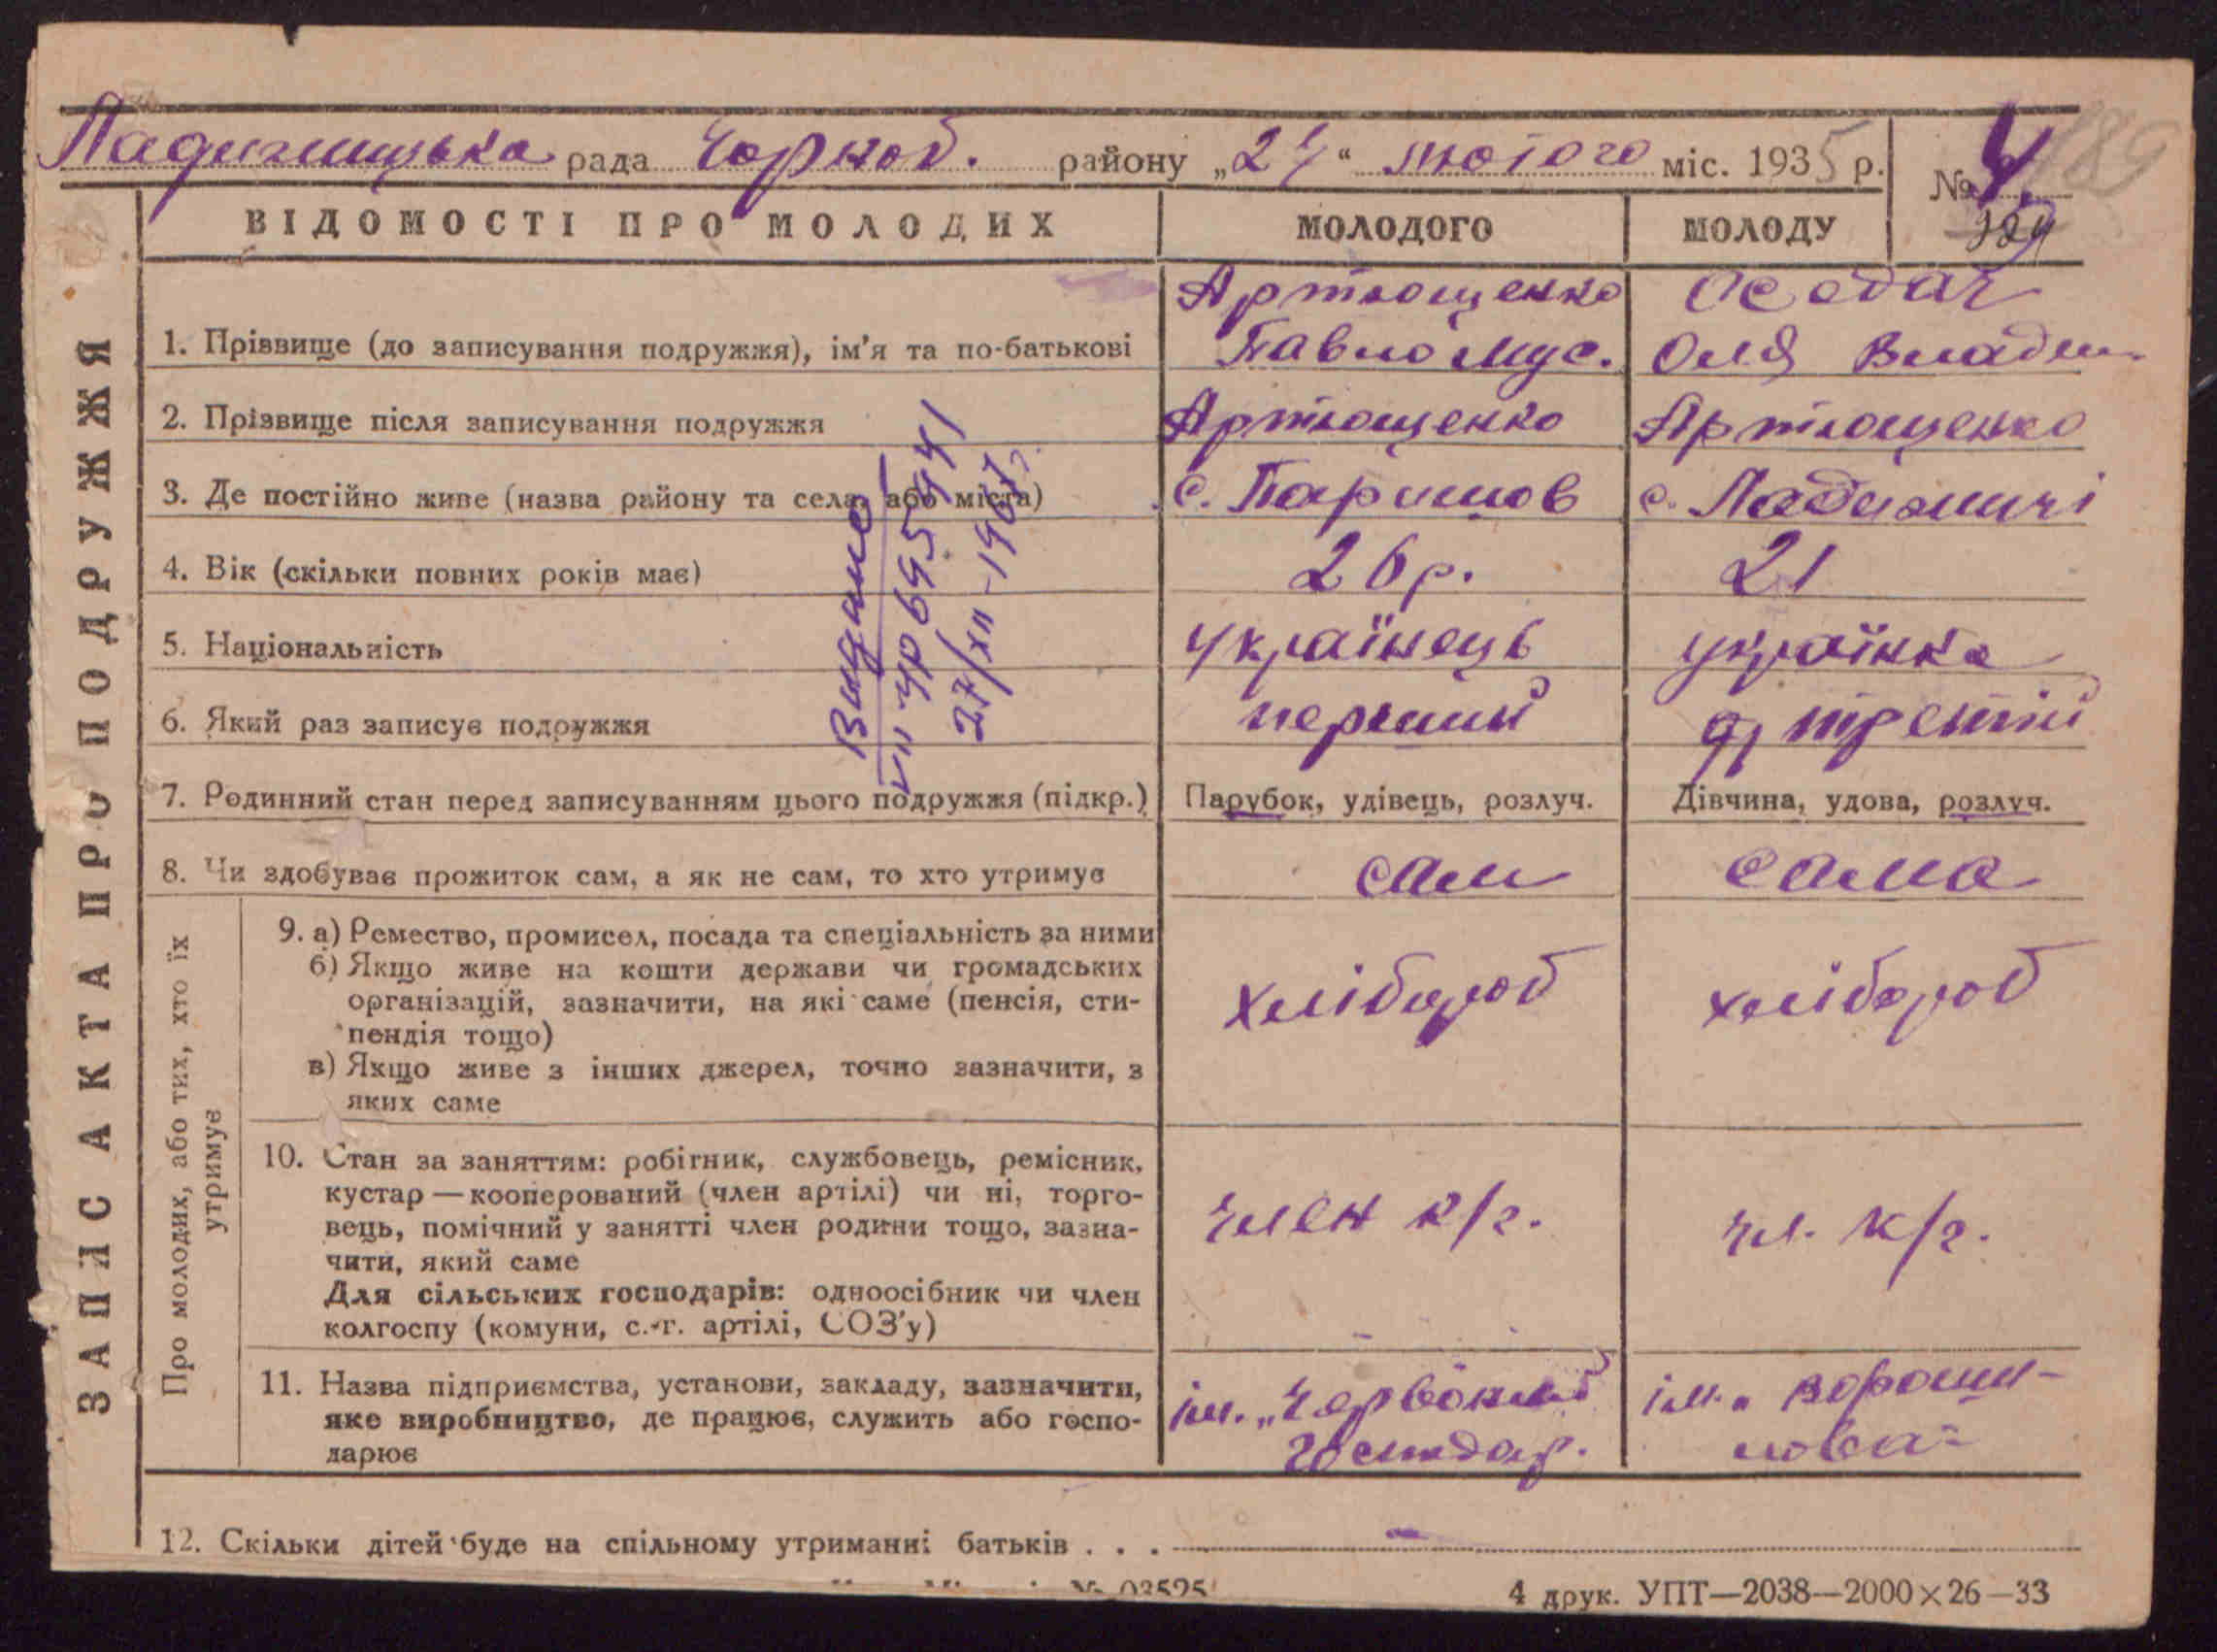 Ладижицька рада Чорноб. району „24“ лютого міс. 1935 р.
№ 4
189
ВІДОМОСТІ ПРО МОЛОДИХ
МОЛОДОГО
МОЛОДУ
ЗАПИС АКТА ПРО ПОДРУЖЖЯ
1. Прізвище (до записування подружжя), ім'я та по-батькові
Артющенко
Павло Мус.
Оседач
Оля Владим.
2. Прізвище після записування подружжя
Артющенко
Артющенко
3. Де постійно живе (назва району та села, або міста)
с. Паришов
с. Ладижичі
4. Вік (скільки повних років має)
26 р.
21
5. Національність
українець
українка
6. Який раз записує подружжя
перший
третій
Видано
27/XII-1967
7. Родинний стан перед записуванням цього подружжя (підкр.)
Парубок, удівець, розлуч.
Дівчина, удова, розлуч.
8. Чи здобуває прожиток сам, а як не сам, то хто утримує
сам
сама
Про молодих, або тих, хто їх
утримує
9. а) Ремество, промисел, посада та спеціальність за ними
б) Якщо живе на кошти держави чи громадських
організацій, зазначити, на які саме (пенсія, сти-
пендія тощо)
в) Якщо живе з інших джерел, точно зазначити, з
яких саме
хлібороб
хлібороб
10. Стан за заняттям: робітник, службовець, ремісник,
кустар — кооперований (член артілі) чи ні, торго-
вець, помічний у занятті член родини тощо, зазна-
чити, який саме
Для сільських господарів: одноосібник чи член
колгоспу (комуни, с.-г. артілі, СОЗ'у)
член к/г.
чл. к/г.
11. Назва підприємства, установи, закладу, зазначити,
яке виробництво, де працює, служить або госпо-
дарює
ім. „Червоний
господар.
ім. „Вороши-
лова"
12. Скільки дітей буде на спільному утриманні батьків . . .
4 друк. УПТ—2038—2000×26—33